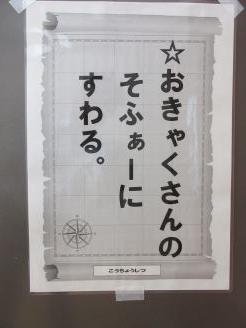 ☆おきゃくさんの
そふぁーに
すわる。
こうちょうしつ